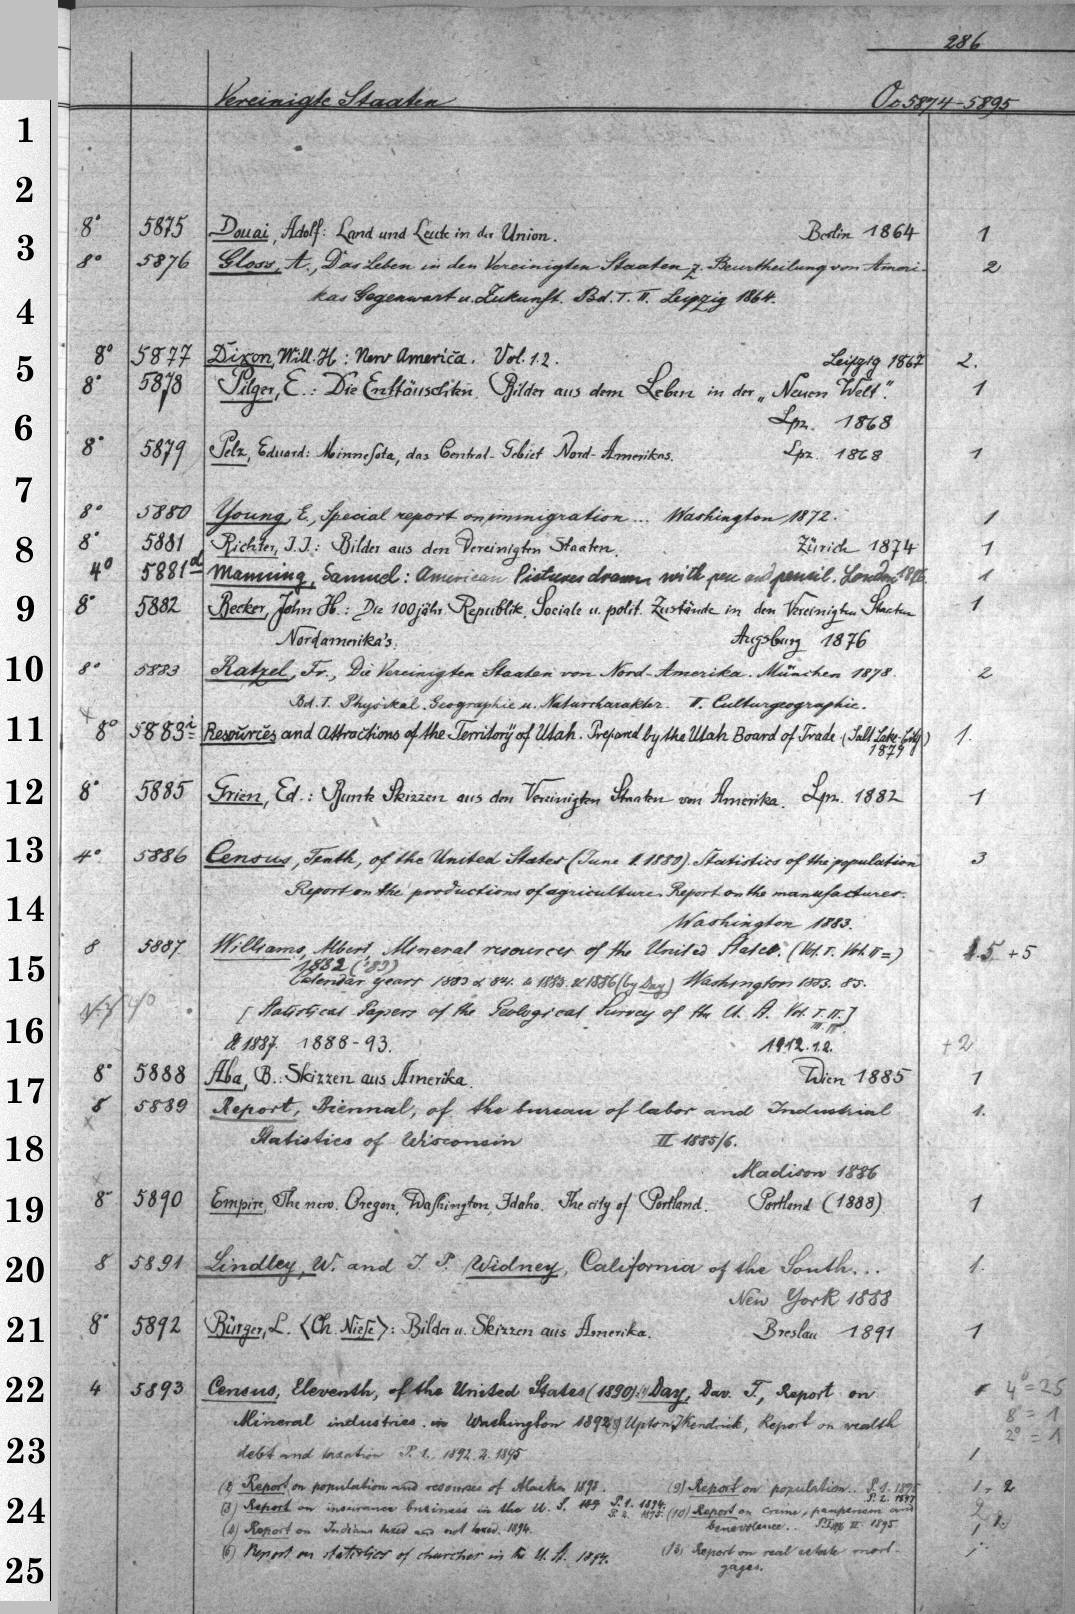 286
Vereinigte Staaten Oo 5874-5895
1
2
8° 5875 Douai, Adolf: Land und Leute in der Union. Berlin 1864 1
3
8° 5876 Gloss, A., Das Leben in den Vereinigten Staaten z. Beurtheilung von Ameri- 2
kas Gegenwart u. Zukunft. Bd. I. II. Leipzig 1864.
4
8° 5877 Dixon, Will. H: New America. Vol. 1.2. Leipzig 1867 2.
5
8° 5878 Pilger, E.: Die Enttäuschten. Bilder aus dem Leben in der „Neuen Welt". 1
Lpz. 1868
6
8° 5879 Pelz, Eduard: Minnesota, das Central-Gebiet Nord-Amerikas. Lpz. 1868 1
7
8° 5880 Young, E., Special report on immigration ... Washington 1872. 1
8
8° 5881 Richter, J.J.: Bilder aus den Vereinigten Staaten. Zürich 1874 1
4° 5881d Manning, Samuel: American Pictures drawn with pen and pencil. London 1
9
8° 5882 Becker, John H.: Die 100jähr. Republik. Sociale u. polit. Zustände in den Vereinigten Staaten 1
Nordamerika's. Augsburg 1876
10
8° 5883 Ratzel, Fr., Die Vereinigten Staaten von Nord-Amerika. München 1878. 2
Bd. I. Physikal. Geographie u. Naturcharakter. II. Culturgeographie.
11
8° 5883i Resources and Attractions of the Territory of Utah. Prepared by the Utah Board of Trade (Salt Lake-City) 1.
1879
12
8° 5885 Grien, Ed.: Bunte Skizzen aus den Vereinigten Staaten von Amerika. Lpz. 1882 1
13
4° 5886 Census, Tenth, of the United States (June 1. 1880). Statistics of the population 3
Report on the productions of agriculture. Report on the manufactures.
14
Washington 1883.
8 5887 Williams, Albert, Mineral resources of the United States. (Vol. I. Vol. II=) 5 + 5
15
1882 ('83)
Calendar years 1883 & 84. & 1885. & 1886 (by Day) Washington 1883. 85.
[Statistical Papers of the Geological Survey of the U. A. Vol. I. II.]
III. IV.
16
& 1887. 1888-93. 1912. 1.2. +2
8° 5888 Aba, B.: Skizzen aus Amerika. Wien 1885 1
17
8 5889 Report, Biennal, of the bureau of labor and Industrial 1.
18
Statistics of Wisconsin II 1885/6.
Madison 1886
19
8° 5890 Empire, The new. Oregon, Washington, Idaho. The city of Portland. Portland (1888) 1
20
8 5891 Lindley, W. and J. P. Widney, California of the South... 1.
New York 1888
21
8° 5892 Bürger, L. <Ch. Niese>: Bilder u. Skizzen aus Amerika. Breslau 1891 1
22
4 5893 Census, Eleventh, of the United States (1890). Day, Dav. T., Report on 4° = 25
Mineral industries. in Washington 1892 Upton, J Kendrick, Report on wealth 8° = 1
2° = 1
23
debt and taxation P. 1. 1892. 2. 1895 1
(2) Report on population and resources of Alaska 1893. (9) Report on population.. P. 1. 1895 1. 2
P. 2. 1897
24
(3) Report on insurance business in the U. S. P. 1. 1894. (10) Report on crime, pauperism and 2
P. 2. 1895. benevolence.. II 1895
(4) Report on Indians taxed and not taxed. 1894.
25
(6) Report on statistics of churches in the U. A. 1894. (13) Report on real estate mort-
gages.